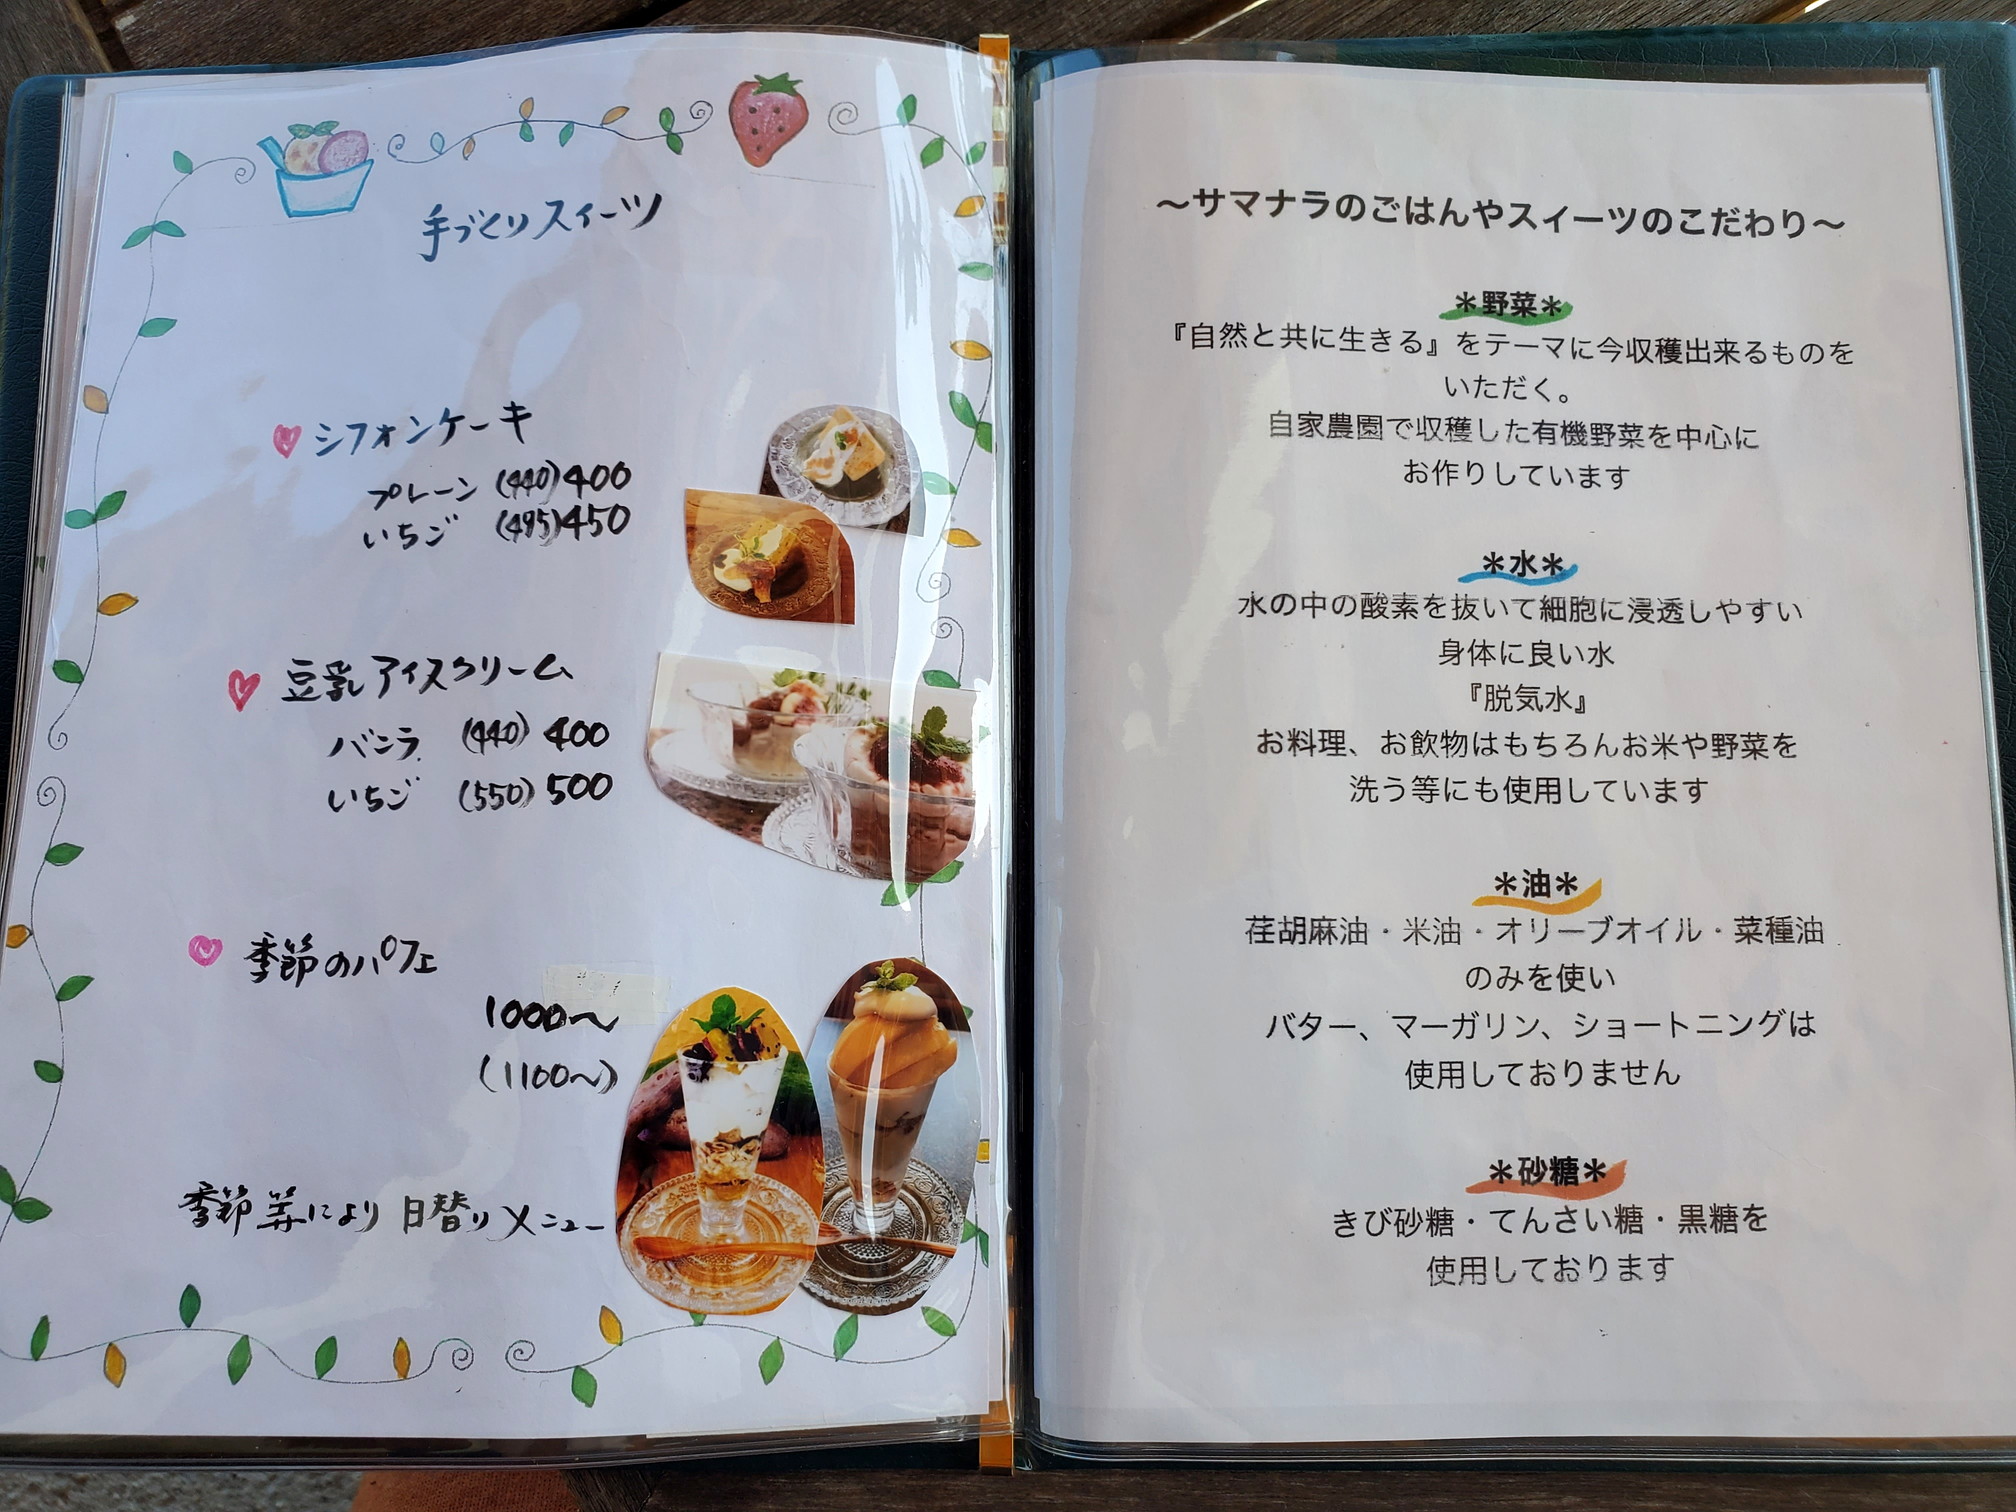 手づくりスイーツ
シフォンケーキ
プレーン (440)400
いちご (495)450
豆乳アイスクリーム
バニラ (440) 400
いちご (550) 500
季節のパフェ
1000〜
(1100〜)
季節等により日替りメニュー
〜サマナラのごはんやスイーツのこだわり〜
＊野菜＊
『自然と共に生きる』をテーマに今収穫出来るものを
いただく。
自家農園で収穫した有機野菜を中心に
お作りしています
＊水＊
水の中の酸素を抜いて細胞に浸透しやすい
身体に良い水
『脱気水』
お料理、お飲物はもちろんお米や野菜を
洗う等にも使用しています
＊油＊
荏胡麻油・米油・オリーブオイル・菜種油
のみを使い
バター、マーガリン、ショートニングは
使用しておりません
＊砂糖＊
きび砂糖・てんさい糖・黒糖を
使用しております